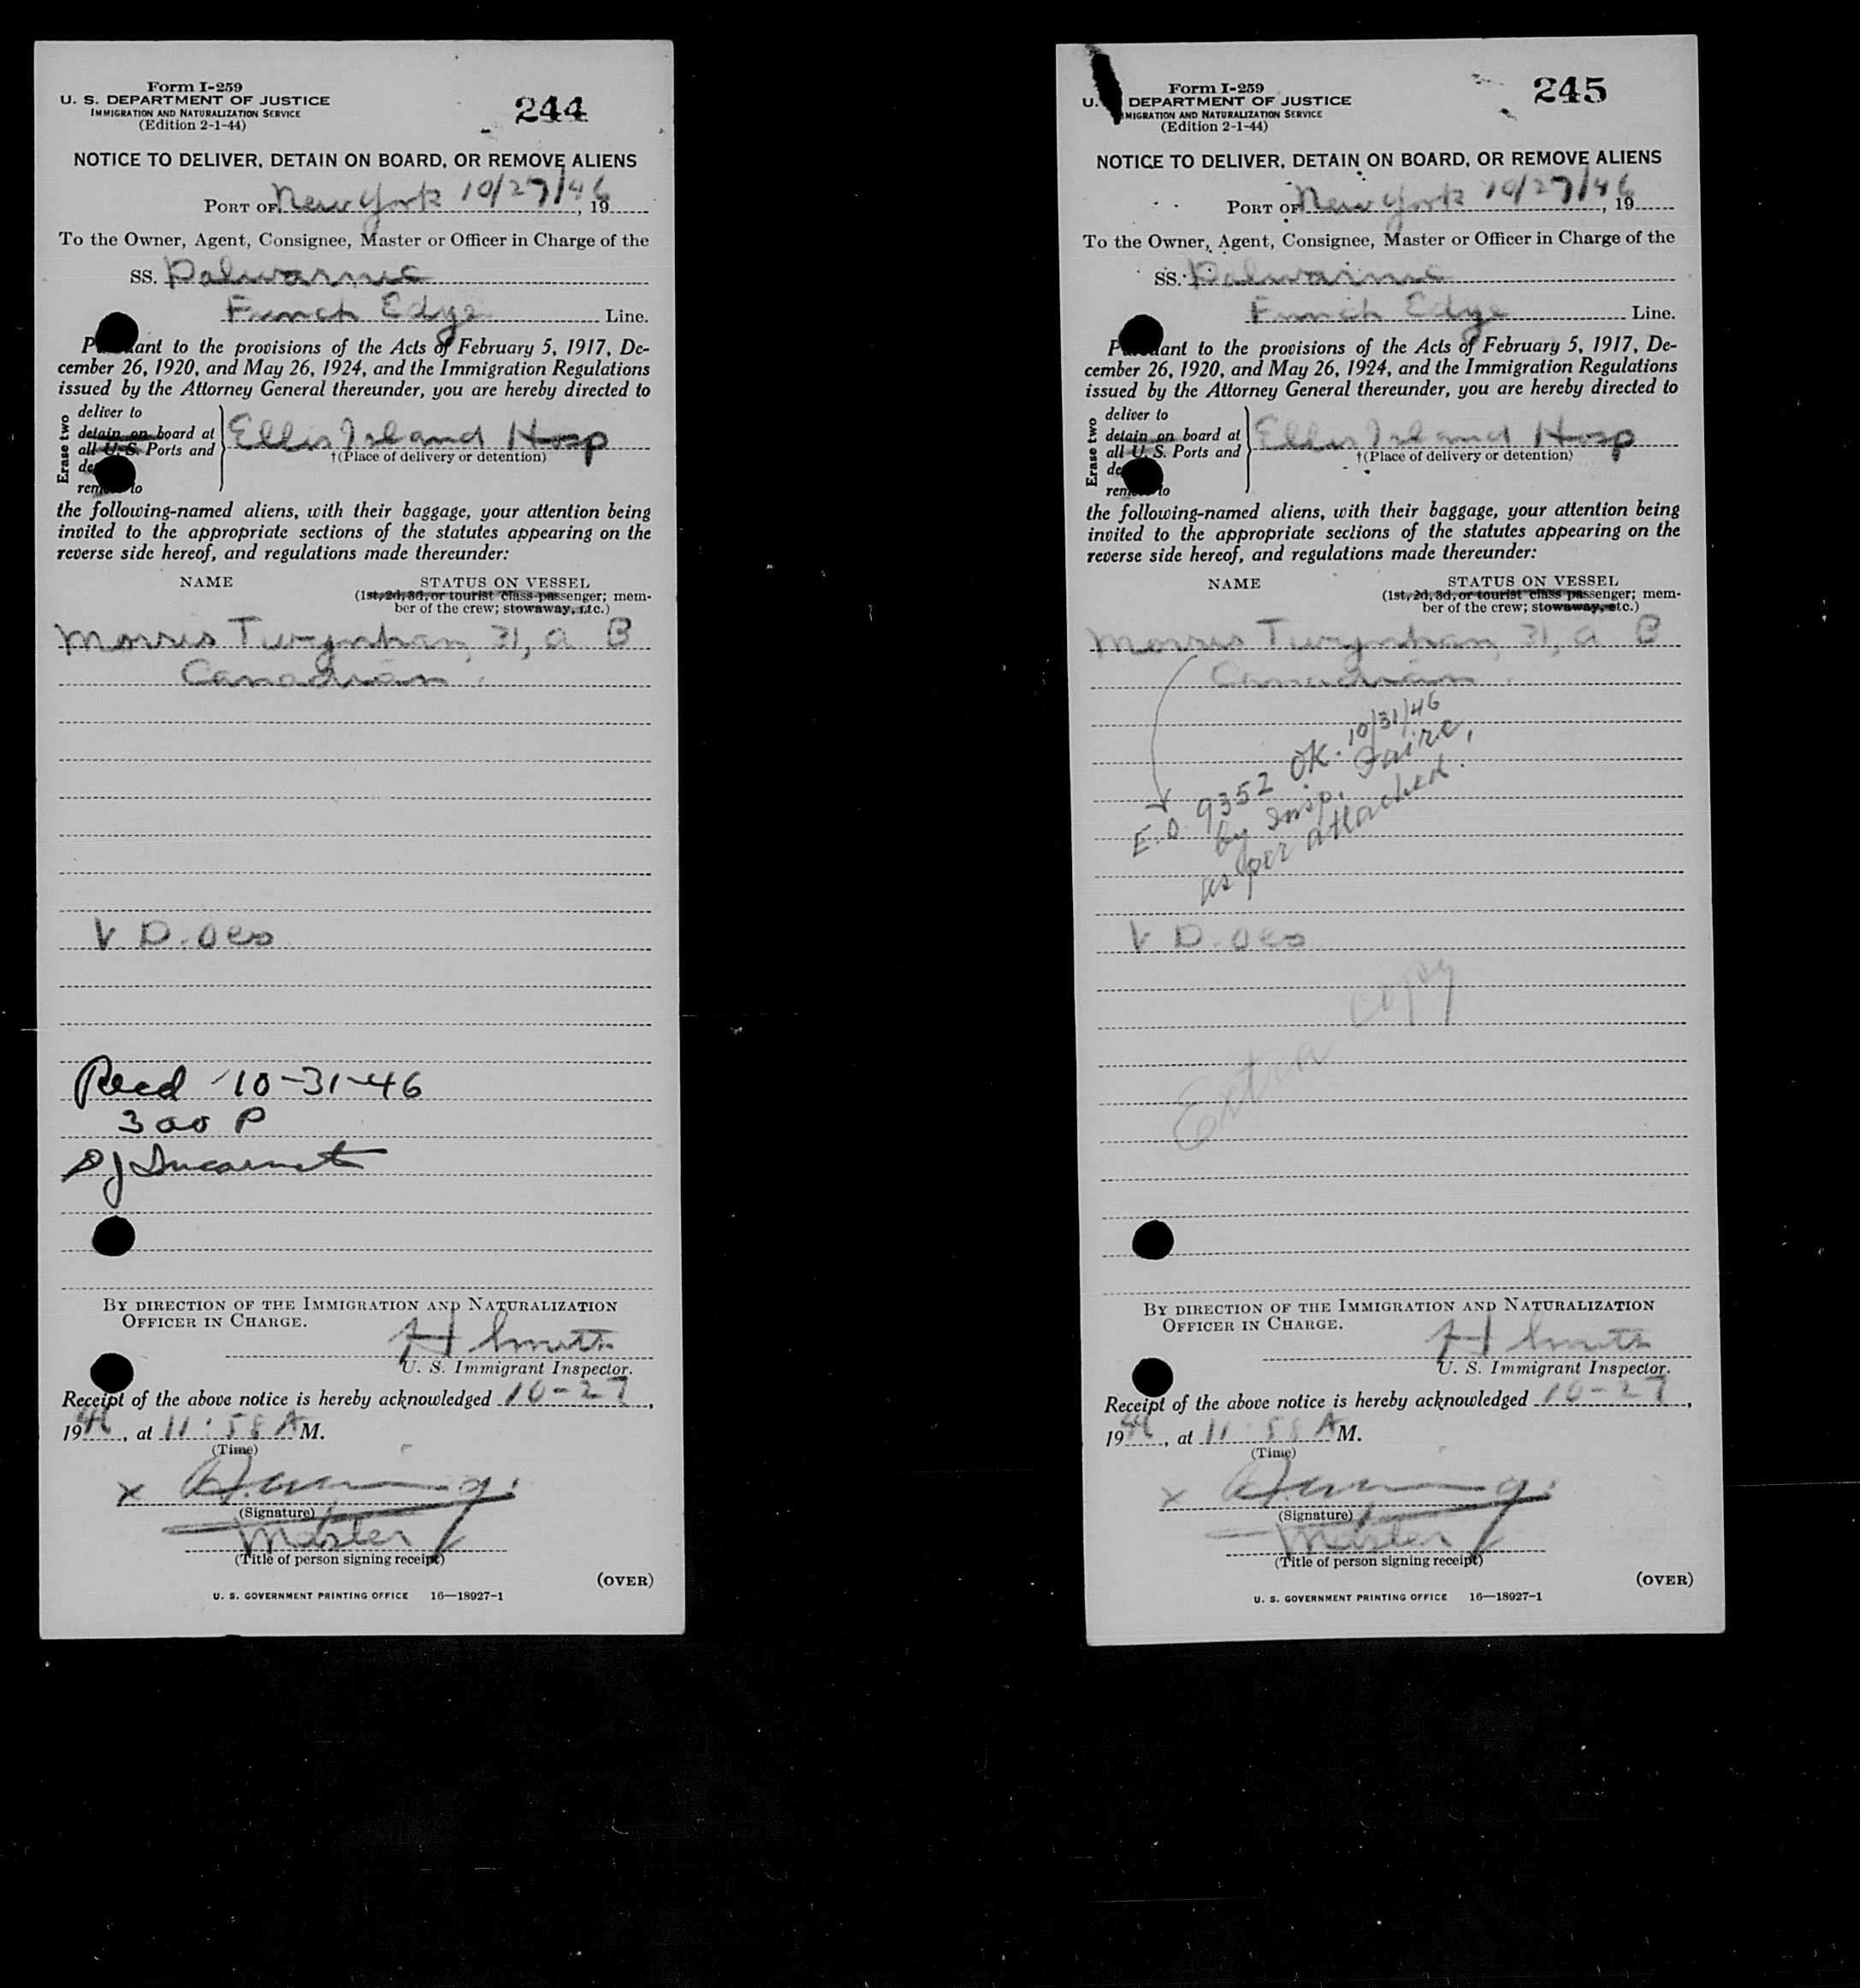 Form I-259
U. S. DEPARTMENT OF JUSTICE
IMMIGRATION AND NATURALIZATION SERVICE
(Edition 2-1-44)
244
NOTICE TO DELIVER, DETAIN ON BOARD, OR REMOVE ALIENS
PORT OF New York 10/27/46, 19
To the Owner, Agent, Consignee, Master or Officer in Charge of the
SS.
Funch Edye Line.
Pursuant to the provisions of the Acts of February 5, 1917, De-
cember 26, 1920, and May 26, 1924, and the Immigration Regulations
issued by the Attorney General thereunder, you are hereby directed to
Erase two
deliver to
detain on board at
all U. S. Ports and
remove to
Ellis Island Hosp
†(Place of delivery or detention)
the following-named aliens, with their baggage, your attention being
invited to the appropriate sections of the statutes appearing on the
reverse side hereof, and regulations made thereunder:
NAME STATUS ON VESSEL
(1st, 2d, 3d, or tourist class passenger; mem-
ber of the crew; stowaway, etc.)
Morris Twynham, 31, a B
Canadian
V. D.
Recd 10-31-46
300 P
BY DIRECTION OF THE IMMIGRATION AND NATURALIZATION
OFFICER IN CHARGE.
H Smith
U. S. Immigrant Inspector.
Receipt of the above notice is hereby acknowledged 10-27,
1946, at 11:58 A M.
(Time)
x
(Signature)
Master
(Title of person signing receipt)
(OVER)
U. S. GOVERNMENT PRINTING OFFICE 16—18927-1
Form I-259
U. DEPARTMENT OF JUSTICE
IMMIGRATION AND NATURALIZATION SERVICE
(Edition 2-1-44)
245
NOTICE TO DELIVER, DETAIN ON BOARD, OR REMOVE ALIENS
PORT OF New York 10/27/46, 19
To the Owner, Agent, Consignee, Master or Officer in Charge of the
SS.
Funch Edye Line.
Pursuant to the provisions of the Acts of February 5, 1917, De-
cember 26, 1920, and May 26, 1924, and the Immigration Regulations
issued by the Attorney General thereunder, you are hereby directed to
Erase two
deliver to
detain on board at
all U. S. Ports and
remove to
Ellis Island Hosp
†(Place of delivery or detention)
the following-named aliens, with their baggage, your attention being
invited to the appropriate sections of the statutes appearing on the
reverse side hereof, and regulations made thereunder:
NAME STATUS ON VESSEL
(1st, 2d, 3d, or tourist class passenger; mem-
ber of the crew; stowaway, etc.)
Morris Twynham, 31, a B
Canadian
E.O. 9352 OK. 10/31/46
by Insp. Zaire,
as per attached.
V. D.
Extra copy
BY DIRECTION OF THE IMMIGRATION AND NATURALIZATION
OFFICER IN CHARGE.
H Smith
U. S. Immigrant Inspector.
Receipt of the above notice is hereby acknowledged 10-27,
1946, at 11:58 A M.
(Time)
x
(Signature)
Master
(Title of person signing receipt)
(OVER)
U. S. GOVERNMENT PRINTING OFFICE 16—18927-1